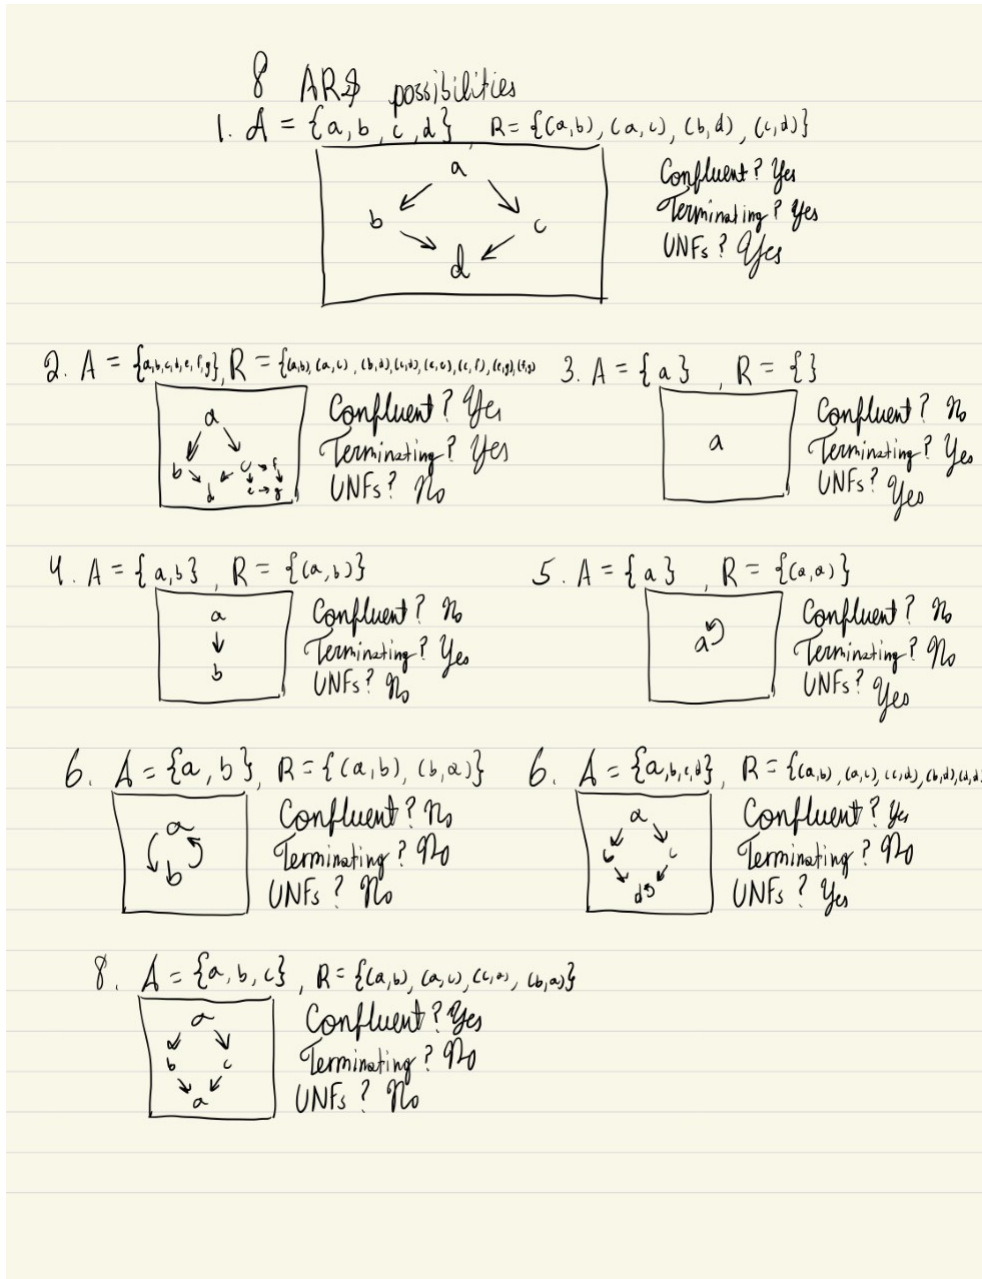 8 ARS possibilities
1. A = {a, b, c, d}, R = {(a,b), (a,c), (b,d), (c,d)}
a
b c
d
Confluent? Yes
Terminating? Yes
UNFs? Yes
2. A = {a,b,c,d,e,f,g}, R = {(a,b), (a,c), (b,d), (c,d), (c,e), (c,f), (e,g), (f,g)
a
b d c f
e g
Confluent? Yes
Terminating? Yes
UNFs? No
3. A = {a}, R = {}
a
Confluent? No
Terminating? Yes
UNFs? Yes
4. A = {a,b}, R = {(a,b)}
a
b
Confluent? No
Terminating? Yes
UNFs? No
5. A = {a}, R = {(a,a)}
a
Confluent? No
Terminating? No
UNFs? Yes
6. A = {a, b}, R = {(a,b), (b,a)}
a
b
Confluent? No
Terminating? No
UNFs? No
6. A = {a,b,c,d}, R = {(a,b), (a,c), (c,d), (b,d), (d,d
a
c
d
Confluent? Yes
Terminating? No
UNFs? Yes
8. A = {a, b, c}, R = {(a,b), (a,c), (c,a), (b,a)}
a
b c
a
Confluent? Yes
Terminating? No
UNFs? No